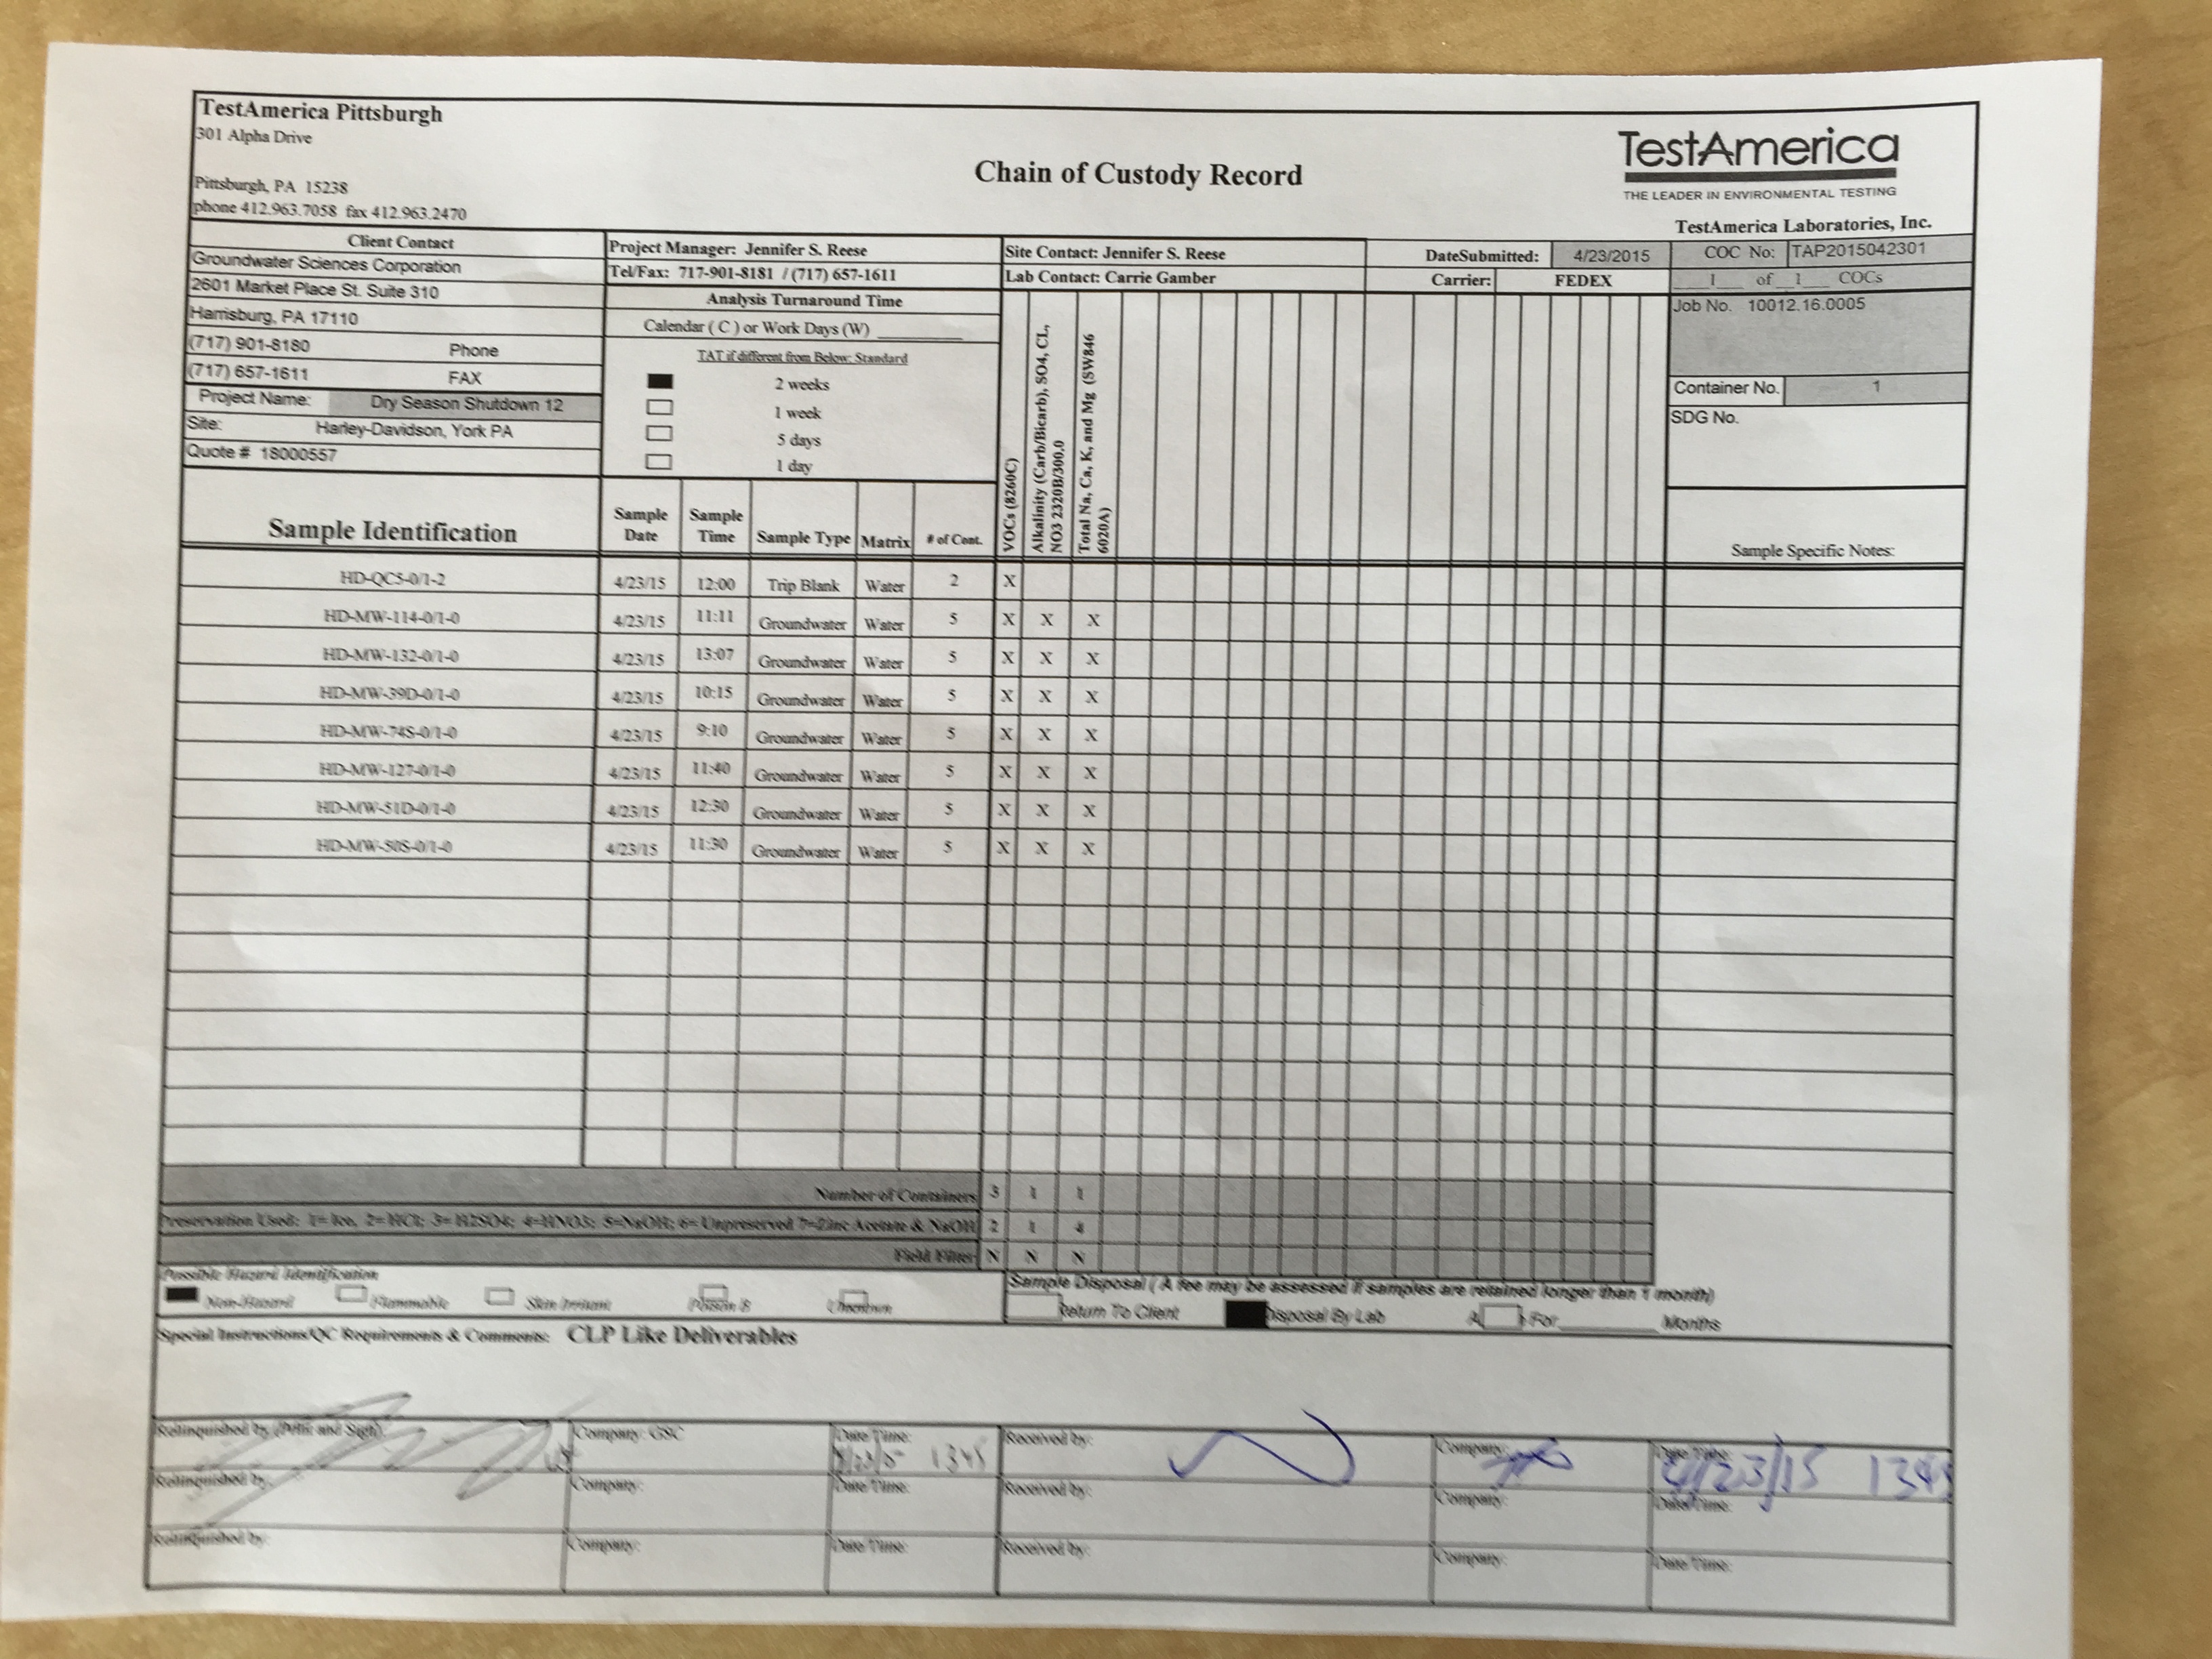 TestAmerica Pittsburgh
301 Alpha Drive
Pittsburgh, PA 15238
phone 412.963.7058 fax 412.963.2470
Chain of Custody Record
TestAmerica
THE LEADER IN ENVIRONMENTAL TESTING
TestAmerica Laboratories, Inc.
Client Contact
Groundwater Sciences Corporation
2601 Market Place St. Suite 310
Harrisburg, PA 17110
(717) 901-8180 Phone
(717) 657-1611 FAX
Project Name: Dry Season Shutdown 12
Site: Harley-Davidson, York PA
Quote # 18000557
Project Manager: Jennifer S. Reese
Tel/Fax: 717-901-8181 / (717) 657-1611
Analysis Turnaround Time
Calendar ( C ) or Work Days (W)
TAT if different from Below: Standard
2 weeks
1 week
5 days
1 day
Site Contact: Jennifer S. Reese
Lab Contact: Carrie Gamber
DateSubmitted: 4/23/2015
Carrier: FEDEX
COC No: TAP2015042301
1 of 1 COCs
Job No. 10012.16.0005
Container No. 1
SDG No.
Sample Identification
Sample Date
Sample Time
Sample Type
Matrix
# of Cont.
VOCs (8260C)
Alkalinity (Carb/Bicarb), SO4, CL,
NO3 2320B/300.0
Total Na, Ca, K, and Mg (SW846
6020A)
Sample Specific Notes:
HD-QC5-0/1-2 4/23/15 12:00 Trip Blank Water 2 X
HD-MW-114-0/1-0 4/23/15 11:11 Groundwater Water 5 X X X
HD-MW-132-0/1-0 4/23/15 13:07 Groundwater Water 5 X X X
HD-MW-39D-0/1-0 4/23/15 10:15 Groundwater Water 5 X X X
HD-MW-74S-0/1-0 4/23/15 9:10 Groundwater Water 5 X X X
HD-MW-127-0/1-0 4/23/15 11:40 Groundwater Water 5 X X X
HD-MW-51D-0/1-0 4/23/15 12:30 Groundwater Water 5 X X X
HD-MW-50S-0/1-0 4/23/15 11:30 Groundwater Water 5 X X X
Number of Containers 3 1 1
Preservation Used: 1= Ice, 2= HCl; 3= H2SO4; 4=HNO3; 5=NaOH; 6= Unpreserved 7=Zinc Acetate & NaOH 2 1 4
Field Filter N N N
Possible Hazard Identification
Non-Hazard Flammable Skin Irritant Poison B Unknown
Sample Disposal ( A fee may be assessed if samples are retained longer than 1 month)
Return To Client Disposal By Lab For Months
Special Instructions/QC Requirements & Comments: CLP Like Deliverables
Relinquished by (Print and Sign): Company: GSC Date/Time: 1345 Received by: Company: Date/Time: 4/23/15 1345
Relinquished by: Company: Date/Time: Received by: Company: Date/Time:
Relinquished by: Company: Date/Time: Received by: Company: Date/Time: